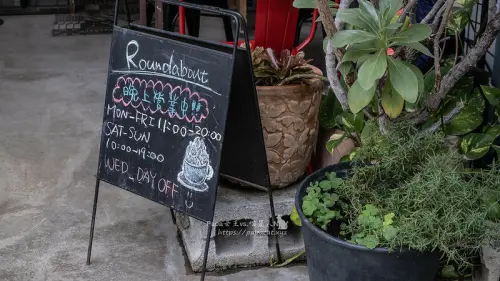 Roundabout
晚上營業中!!
MON-FRI 11:00-20:00
SAT-SUN
10:00-19:00
WED_DAY OFF
https://